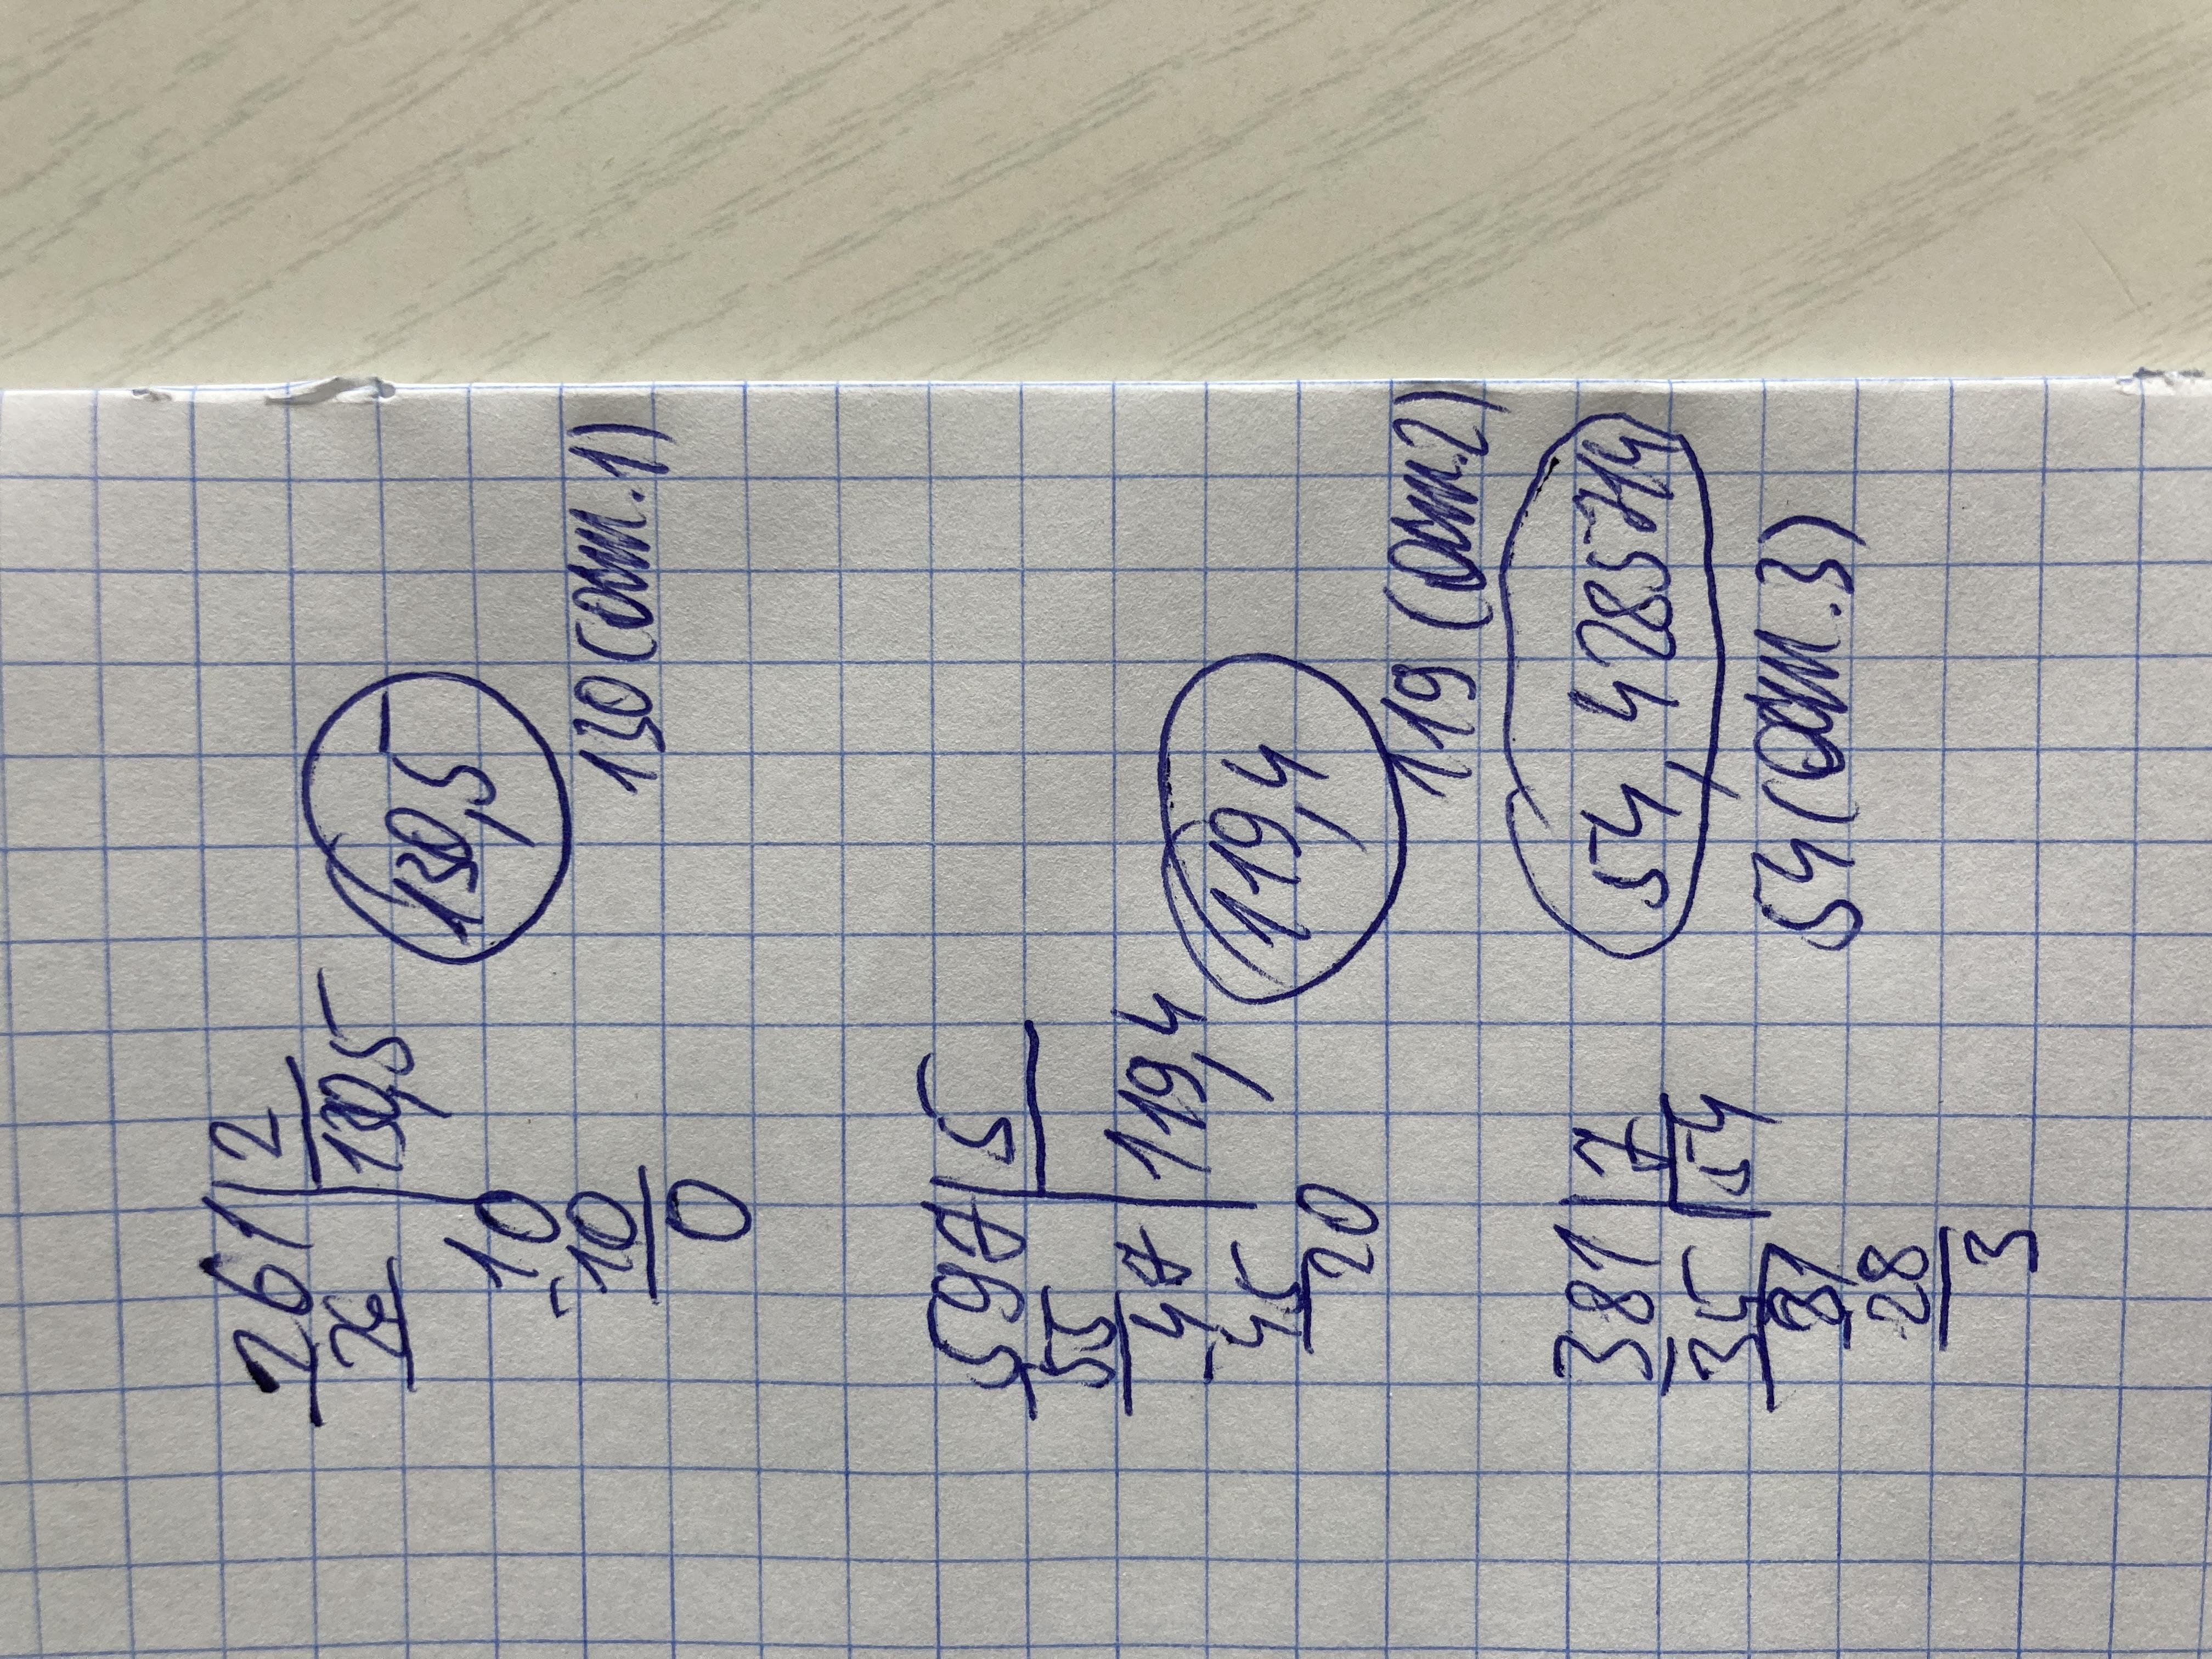 261 2
26 130,5
10
-10
0
130,5
130 (ост.1)
597 5
55 119,4
47
-45
20
119,4
119 (ост.2)
381 7
35 54
31
28
3
54,4285714
54 (ост.3)